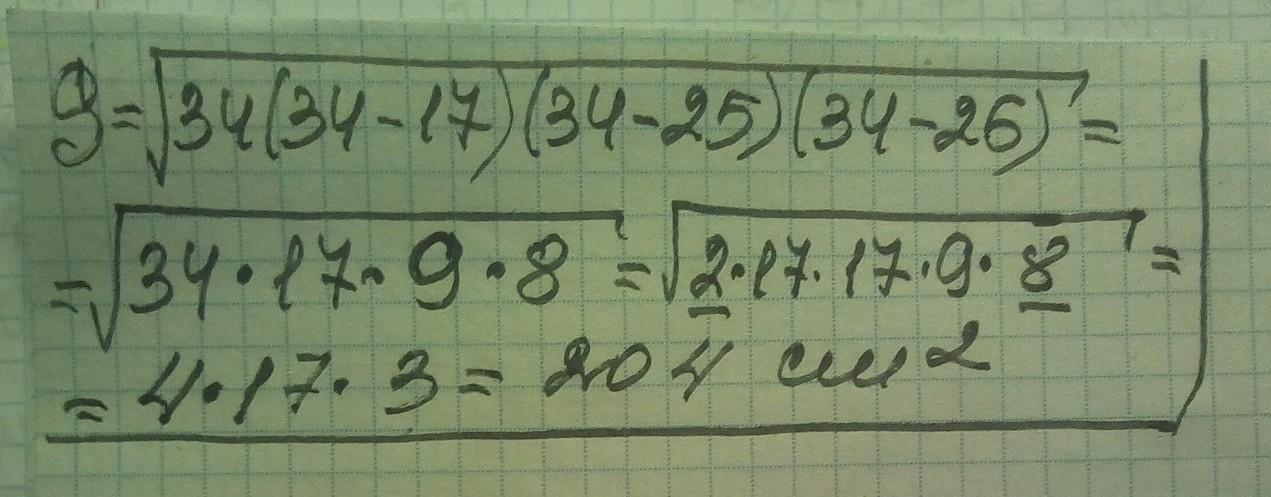 S=√34(34-17)(34-25)(34-26) =
=√34·17·9·8 =√2·17·17·9·8 =
= 4·17·3= 204 см²